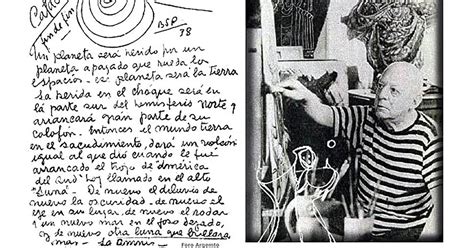 fin de fin
BSP
38
Un planeta será herido por un
planeta apagado que rueda los
espacios - ese planeta será la tierra
La herida en el choque será en
la parte sur del hemisferio Norte y
arrancará gran parte de su
colofón. Entonces el mundo tierra
en el sacudimiento, dará un volcón
igual al que dió cuando le fué
arrancado el trozo de América
del Sud hoy llamado en el alto
"Luna" - De nuevo el diluvio de
nuevo la oscuridad - de nuevo el
eje en su lugar, de nuevo el rodar
y un nuevo mar en el foso dejado,
y de nuevo otra luna que brillará
mas -
Foro Argento